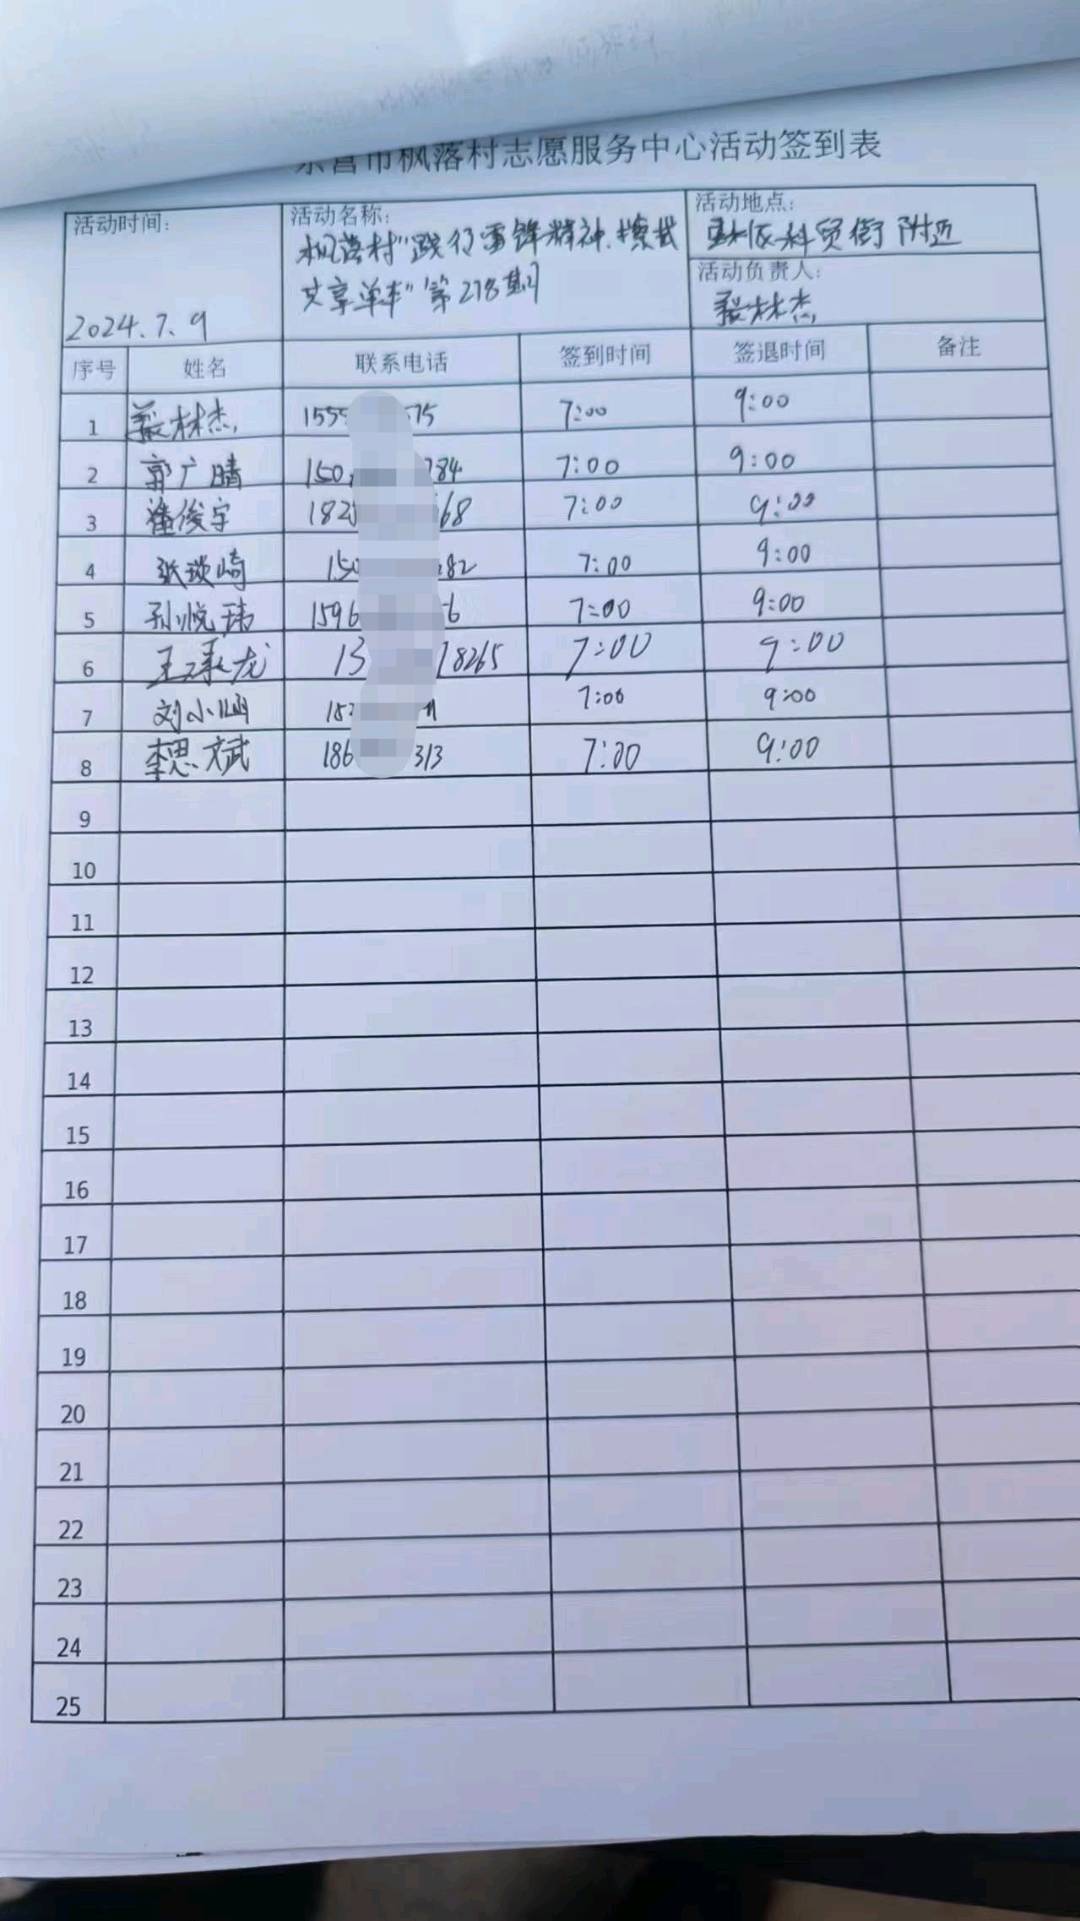 东营市枫落村志愿服务中心活动签到表
活动时间:
2024.7.9
活动名称:
枫落村"践行雷锋精神.擦拭
共享单车"第278期
活动地点:
科贸街附近
活动负责人:
林杰
序号 姓名 联系电话 签到时间 签退时间 备注
1 林杰 155 75 7:00 9:00
2 郭广晴 150 84 7:00 9:00
3 潘俊宇 182 68 7:00 9:00
4 张琰崎 150 82 7:00 9:00
5 孙悦玮 1596 6 7:00 9:00
6 王承龙 13 78265 7:00 9:00
7 刘小 18 7:00 9:00
8 李思斌 186 313 7:00 9:00
9
10
11
12
13
14
15
16
17
18
19
20
21
22
23
24
25